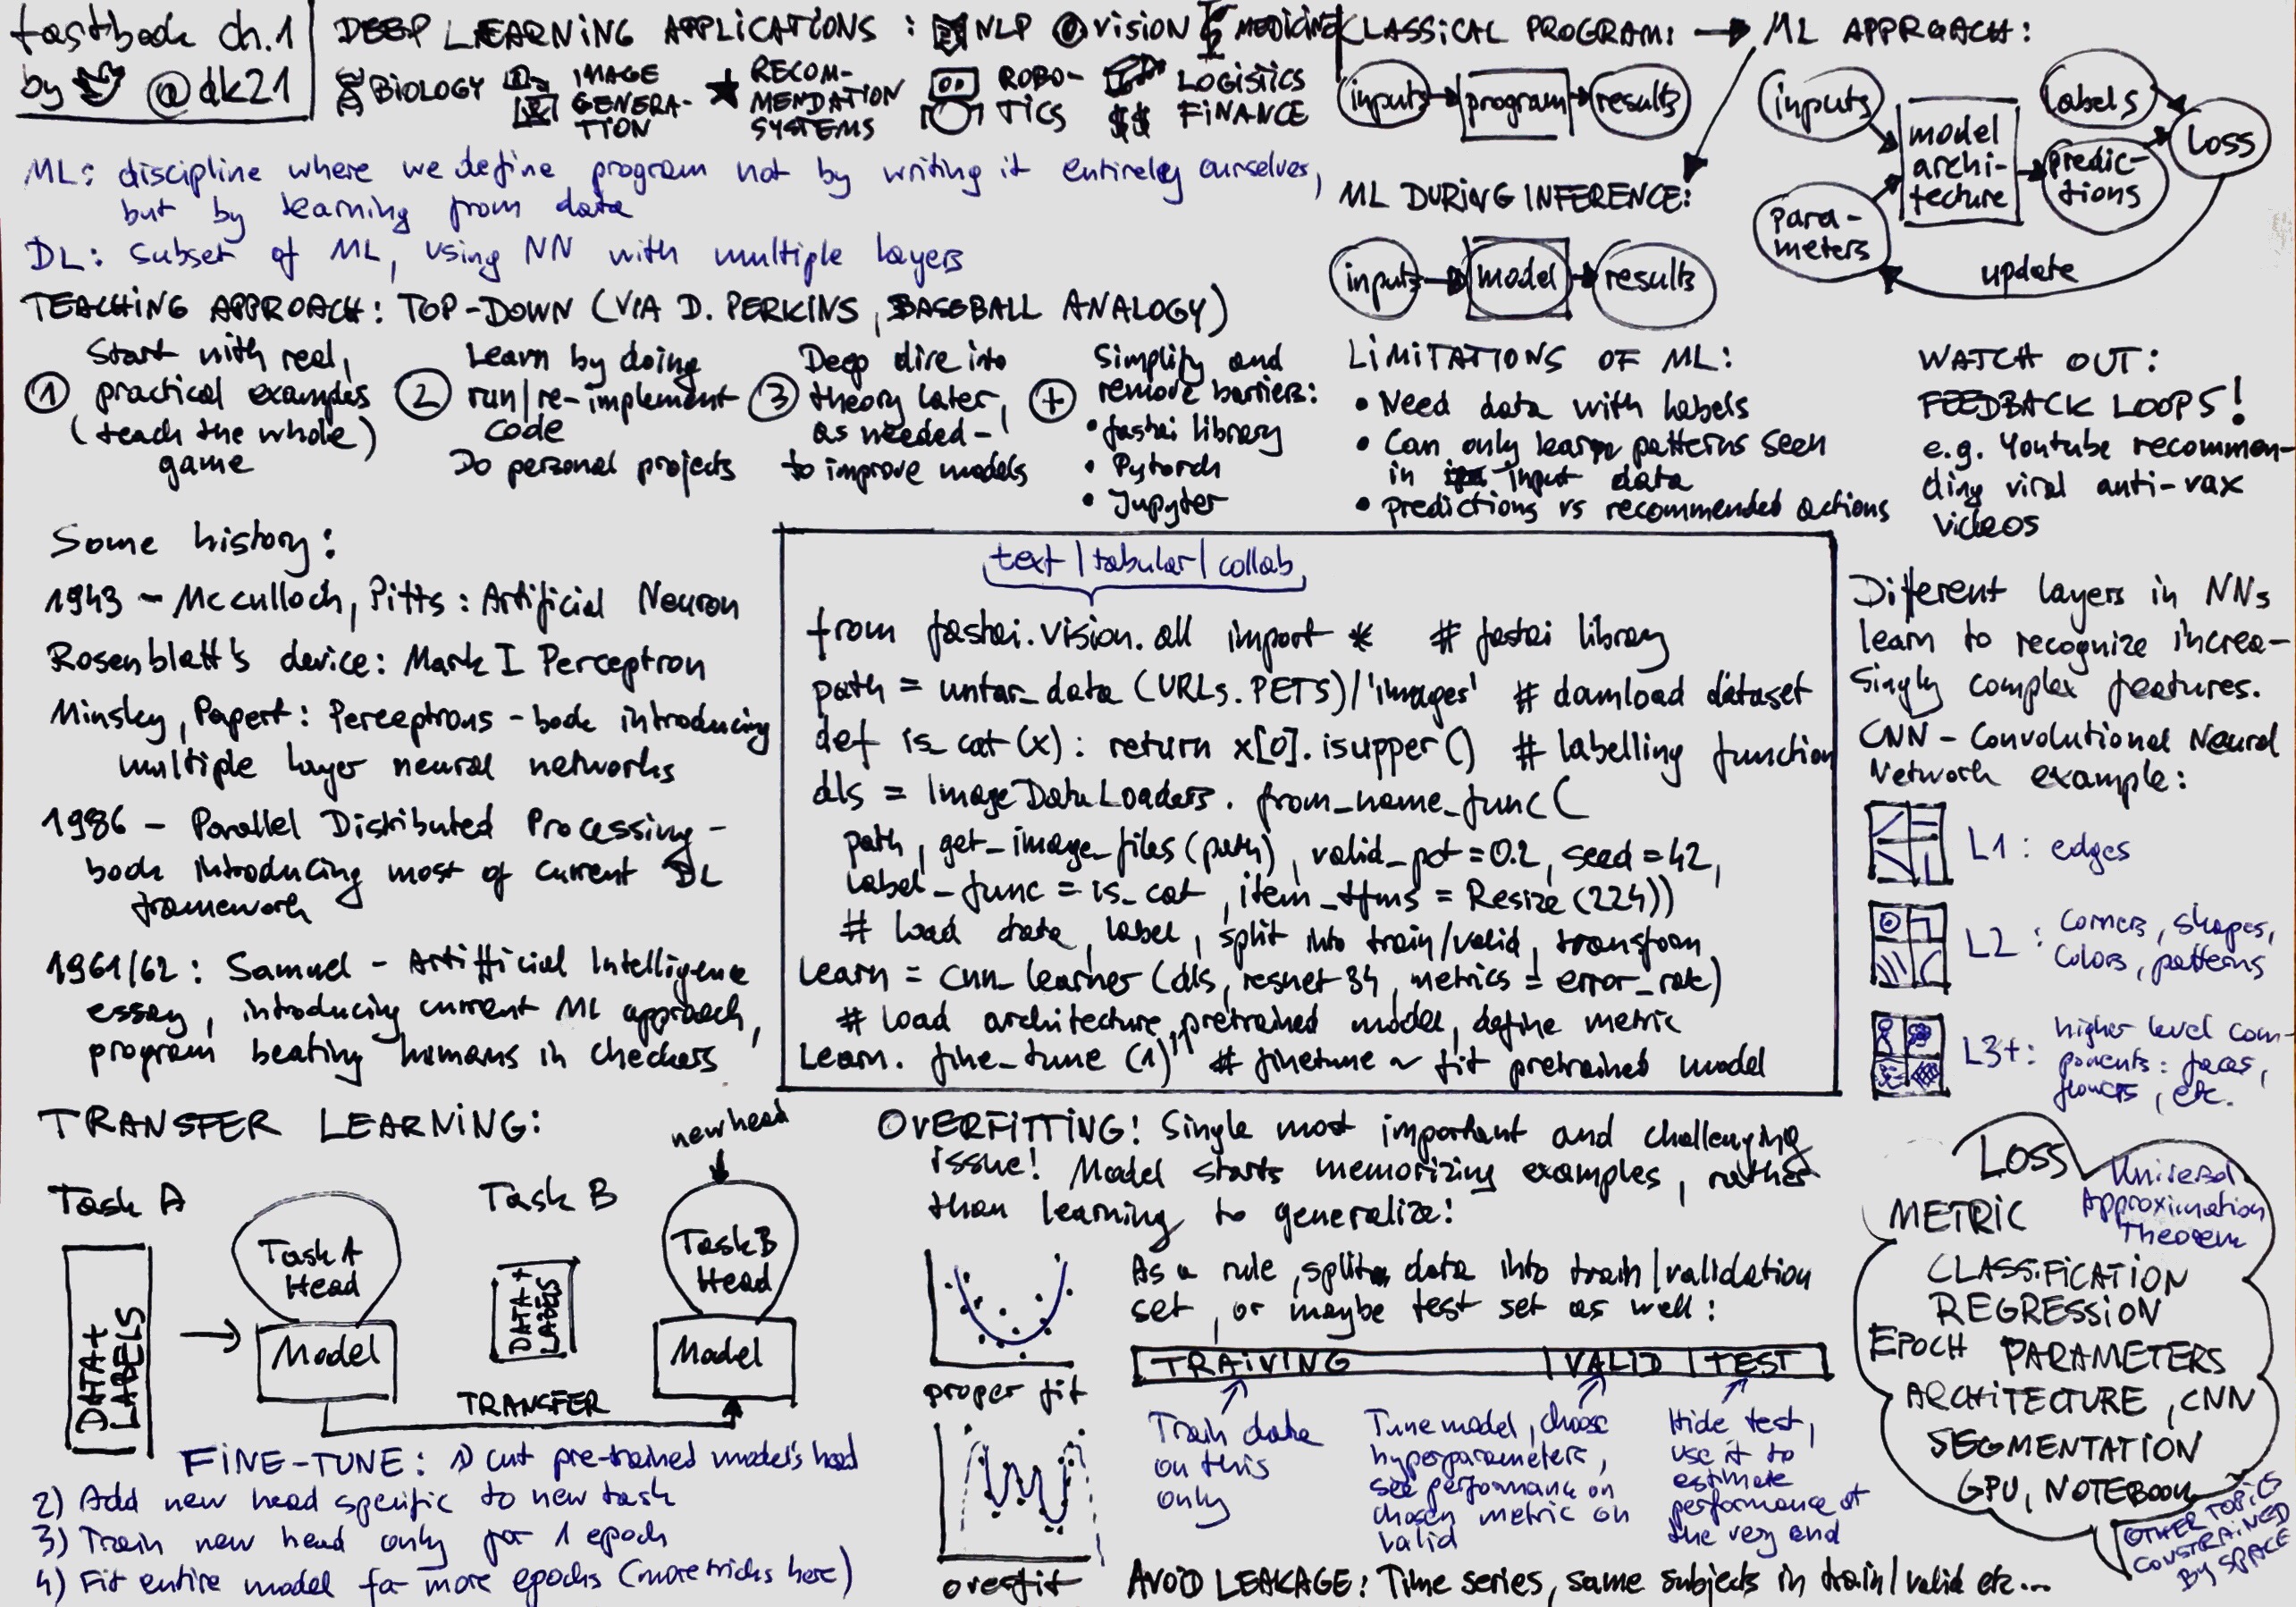 fastbook ch.1
by @dk21
DEEP LEARNING APPLICATIONS: NLP VISION MEDICINE
BIOLOGY IMAGE GENERA-TION RECOM-MENDATION SYSTEMS ROBO-TICS LOGISTICS FINANCE
ML: discipline where we define program not by writing it entireley ourselves,
but by learning from data
DL: subset of ML, using NN with multiple layers
CLASSICAL PROGRAM:
inputs program results
ML APPROACH:
inputs
parameters
model archi-tecture
labels
predic-tions
Loss
update
ML DURING INFERENCE:
inputs model results
TEACHING APPROACH: TOP-DOWN (VIA D. PERKINS, BASEBALL ANALOGY)
1 Start with real,
practical examples
(teach the whole)
game
2 Learn by doing
run/re-implement
code
Do personal projects
3 Deep dive into
theory later,
as needed -
to improve models
+ Simplify and
remove barriers:
• fastai library
• Pytorch
• Jupyter
LIMITATIONS OF ML:
• Need data with labels
• Can only learn patterns seen
in input data
• predictions vs recommended actions
WATCH OUT:
FEEDBACK LOOPS!
e.g. Youtube recommen-
ding viral anti-vax
videos
Some history:
1943 - McCulloch, Pitts: Artificial Neuron
Rosenblatt's device: Mark I Perceptron
Minsky, Papert: Perceptrons - book introducing
multiple layer neural networks
1986 - Parallel Distributed Processing -
book introducing most of current DL
framework
1961/62: Samuel - Artifficial Intelligence
essay, introducing current ML approach,
program beating humans in checkers
text | tabular | collab
from fastai.vision.all import * # fastai library
path = untar_data (URLs.PETS)/'images' # download dataset
def is_cat(x): return x[0].isupper() # labelling function
dls = ImageDataLoaders.from_name_func(
path, get_image_files(path), valid_pct=0.2, seed=42,
label_func = is_cat, item_tfms = Resize(224))
# load data, label, split into train/valid, transform
learn = cnn_learner (dls, resnet34, metrics = error_rate)
# load architecture, pretrained model, define metric
learn.fine_tune (1) # finetune ~ fit pretrained model
Different layers in NNs
learn to recognize increa-
singly complex features.
CNN - Convolutional Neural
Network example:
L1: edges
L2: corners, shapes,
colors, patterns
L3+: higher level com-
ponents: faces,
flowers, etc.
TRANSFER LEARNING:
Task A
DATA+
LABELS
Task A
Head
Model
Task B
DATA+
LABELS
new head
Task B
Head
Model
TRANSFER
FINE-TUNE: 1) Cut pre-trained model's head
2) Add new head specific to new task
3) Train new head only for 1 epoch
4) Fit entire model for more epochs (more tricks here)
OVERFITTING! Single most important and challenging
issue! Model starts memorizing examples, rather
than learning to generalize!
proper fit
overfit
As a rule, split data into train/validation
set, or maybe test set as well:
TRAINING | VALID | TEST
Train data
on this
only
Tune model, choose
hyperparameters,
see performance on
chosen metric on
valid
Hide test,
use it to
estimate
performance at
the very end
AVOID LEAKAGE: Time series, same subjects in train/valid etc...
LOSS
Universal
Approximation
Theorem
METRIC
CLASSIFICATION
REGRESSION
EPOCH PARAMETERS
ARCHITECTURE, CNN
SEGMENTATION
GPU, NOTEBOOK
OTHER TOPICS
CONSTRAINED
BY SPACE